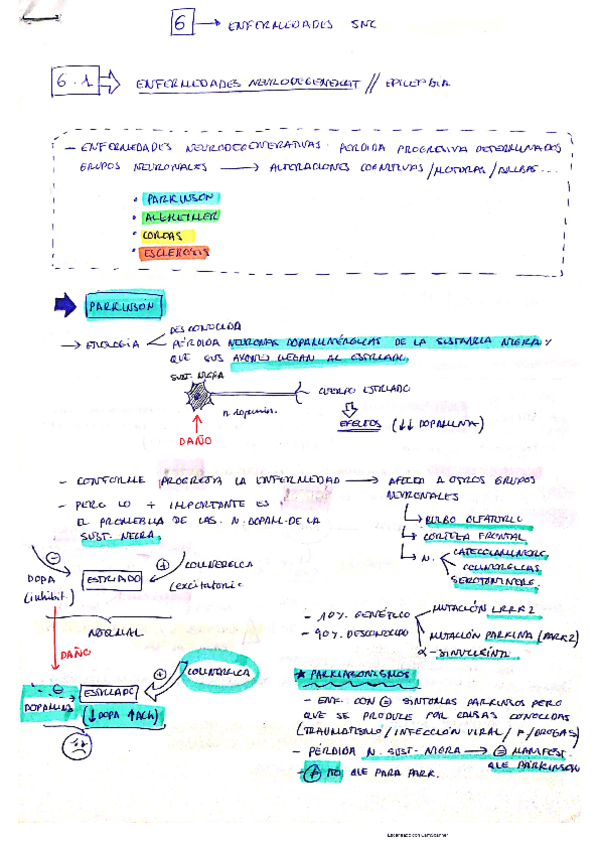 6 → ENFERMEDADES SNC
6.1 ENFERMEDADES NEURODEGENERAT // EPILEPSIA
- ENFERMEDADES NEURODEGENERATIVAS. PÉRDIDA PROGRESIVA DETERMINADOS
GRUPOS NEURONALES → ALTERACIONES COGNITIVAS/MOTORAS/AMBAS...
• PARKINSON
• ALZHEIMER
• COREAS
• ESCLEROSIS
PARKINSON
→ ETIOLOGÍA
DESCONOCIDA
PÉRDIDA NEURONAS DOPAMINÉRGICAS DE LA SUSTANCIA NIGRA Y
QUE SUS AXONES LLEGAN AL ESTRIADO.
SUST. NIGRA
CUERPO ESTRIADO
n. dopamin.
EFECTOS (↓↓ DOPAMINA)
DAÑO
- CONFORME PROGRESA LA ENFERMEDAD → AFECTA A OTROS GRUPOS
NEURONALES
- PERO LO + IMPORTANTE ES
EL PROBLEMA DE LAS N. DOPAM. DE LA
SUST. NEGRA.
BULBO OLFATORIO
CORTEZA FRONTAL
N.
CATECOLAMINERG.
COLINERGICAS
SEROTONINERG.
DOPA
(inhibit.)
⊖
ESTRIADO
⊕ COLINERGICA
(excitatoria)
NORMAL
DAÑO
- 10% GENÉTICO
- 90% DESCONOCIDO
MUTACIÓN LRRK2
MUTACIÓN PARKINA (PARK2)
α-SINUCLEINA
⊖
DOPAMINA
ESTRIADO
(↓DOPA ↑ACh)
⊕ COLINERGICA
★ PARKINSONISMOS
- ENF. CON ⊖ SINTOMAS PARKINSON PERO
QUE SE PRODUCE POR CAUSAS CONOCIDAS
(TRAUMATISMO / INFECCIÓN VIRAL / / DROGAS)
- PÉRDIDA N. SUST. NIGRA → ⊖ MANIFEST.
QUE PARKINSON
- NO QUE PARA PARK.
Escaneado con CamScanner